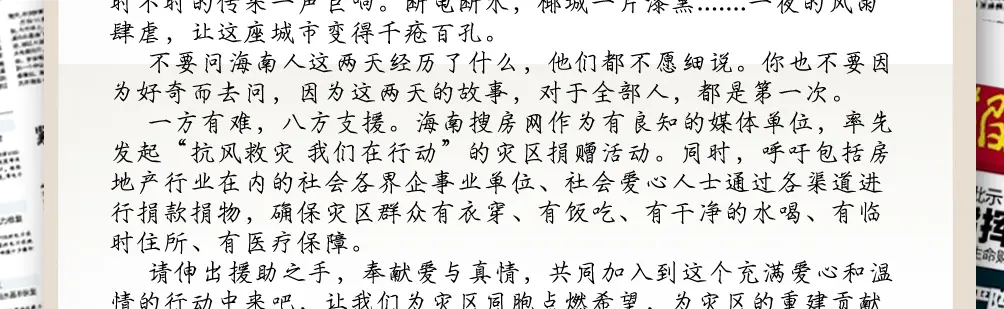 时不时的传来一声巨响。断电断水，椰城一片漆黑.......一夜的风雨
肆虐，让这座城市变得千疮百孔。
不要问海南人这两天经历了什么，他们都不愿细说。你也不要因
为好奇而去问，因为这两天的故事，对于全部人，都是第一次。
一方有难，八方支援。海南搜房网作为有良知的媒体单位，率先
发起“抗风救灾 我们在行动”的灾区捐赠活动。同时，呼吁包括房
地产行业在内的社会各界企事业单位、社会爱心人士通过各渠道进
行捐款捐物，确保灾区群众有衣穿、有饭吃、有干净的水喝、有临
时住所、有医疗保障。
请伸出援助之手，奉献爱与真情，共同加入到这个充满爱心和温
情的行动中来吧，让我们为灾区同胞点燃希望，为灾区的重建贡献